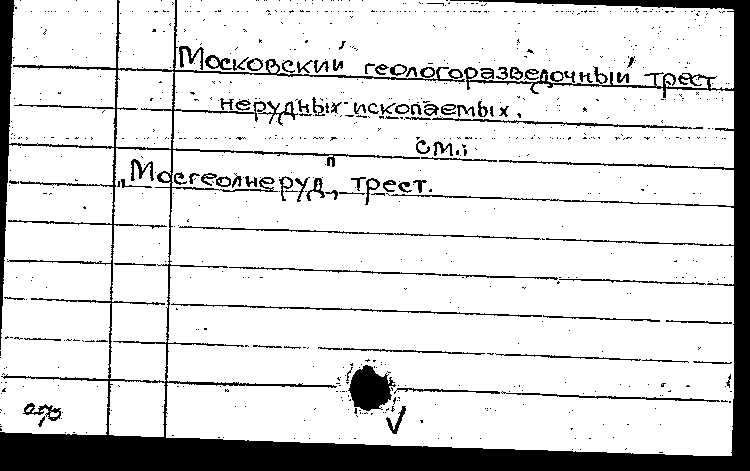 Московский геологоразведочный трест
нерудных ископаемых.
см.:
„Мосгеолнеруд", трест.
V